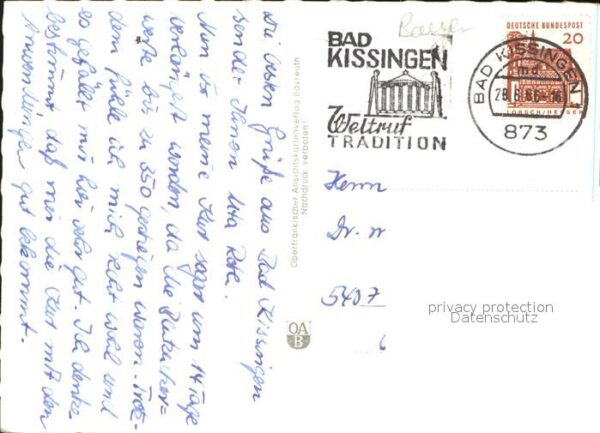 Die besten Grüße aus Bad Kissingen
sendet Ihnen Uta Roth.
Nun ist meine Kur sogar um 14 Tage
verlängert worden, da die
werte bis zu 350 gestiegen waren. Trotz-
dem fühle ich mich sehr wohl und
es gefällt mir hier sehr gut. Ich denke
bestimmt, daß mir die Kur mit den
Anwendungen gut bekommt.
Oberfränkischer Ansichtskartenverlag Bayreuth
Nachdruck verboten!
OA
B
BAD
KISSINGEN
Weltruf
TRADITION
DEUTSCHE BUNDESPOST
20
LORSCH/HESSEN
BAD KISSINGEN 1
md
873
Herrn
Dr.
privacy protection
Datenschutz